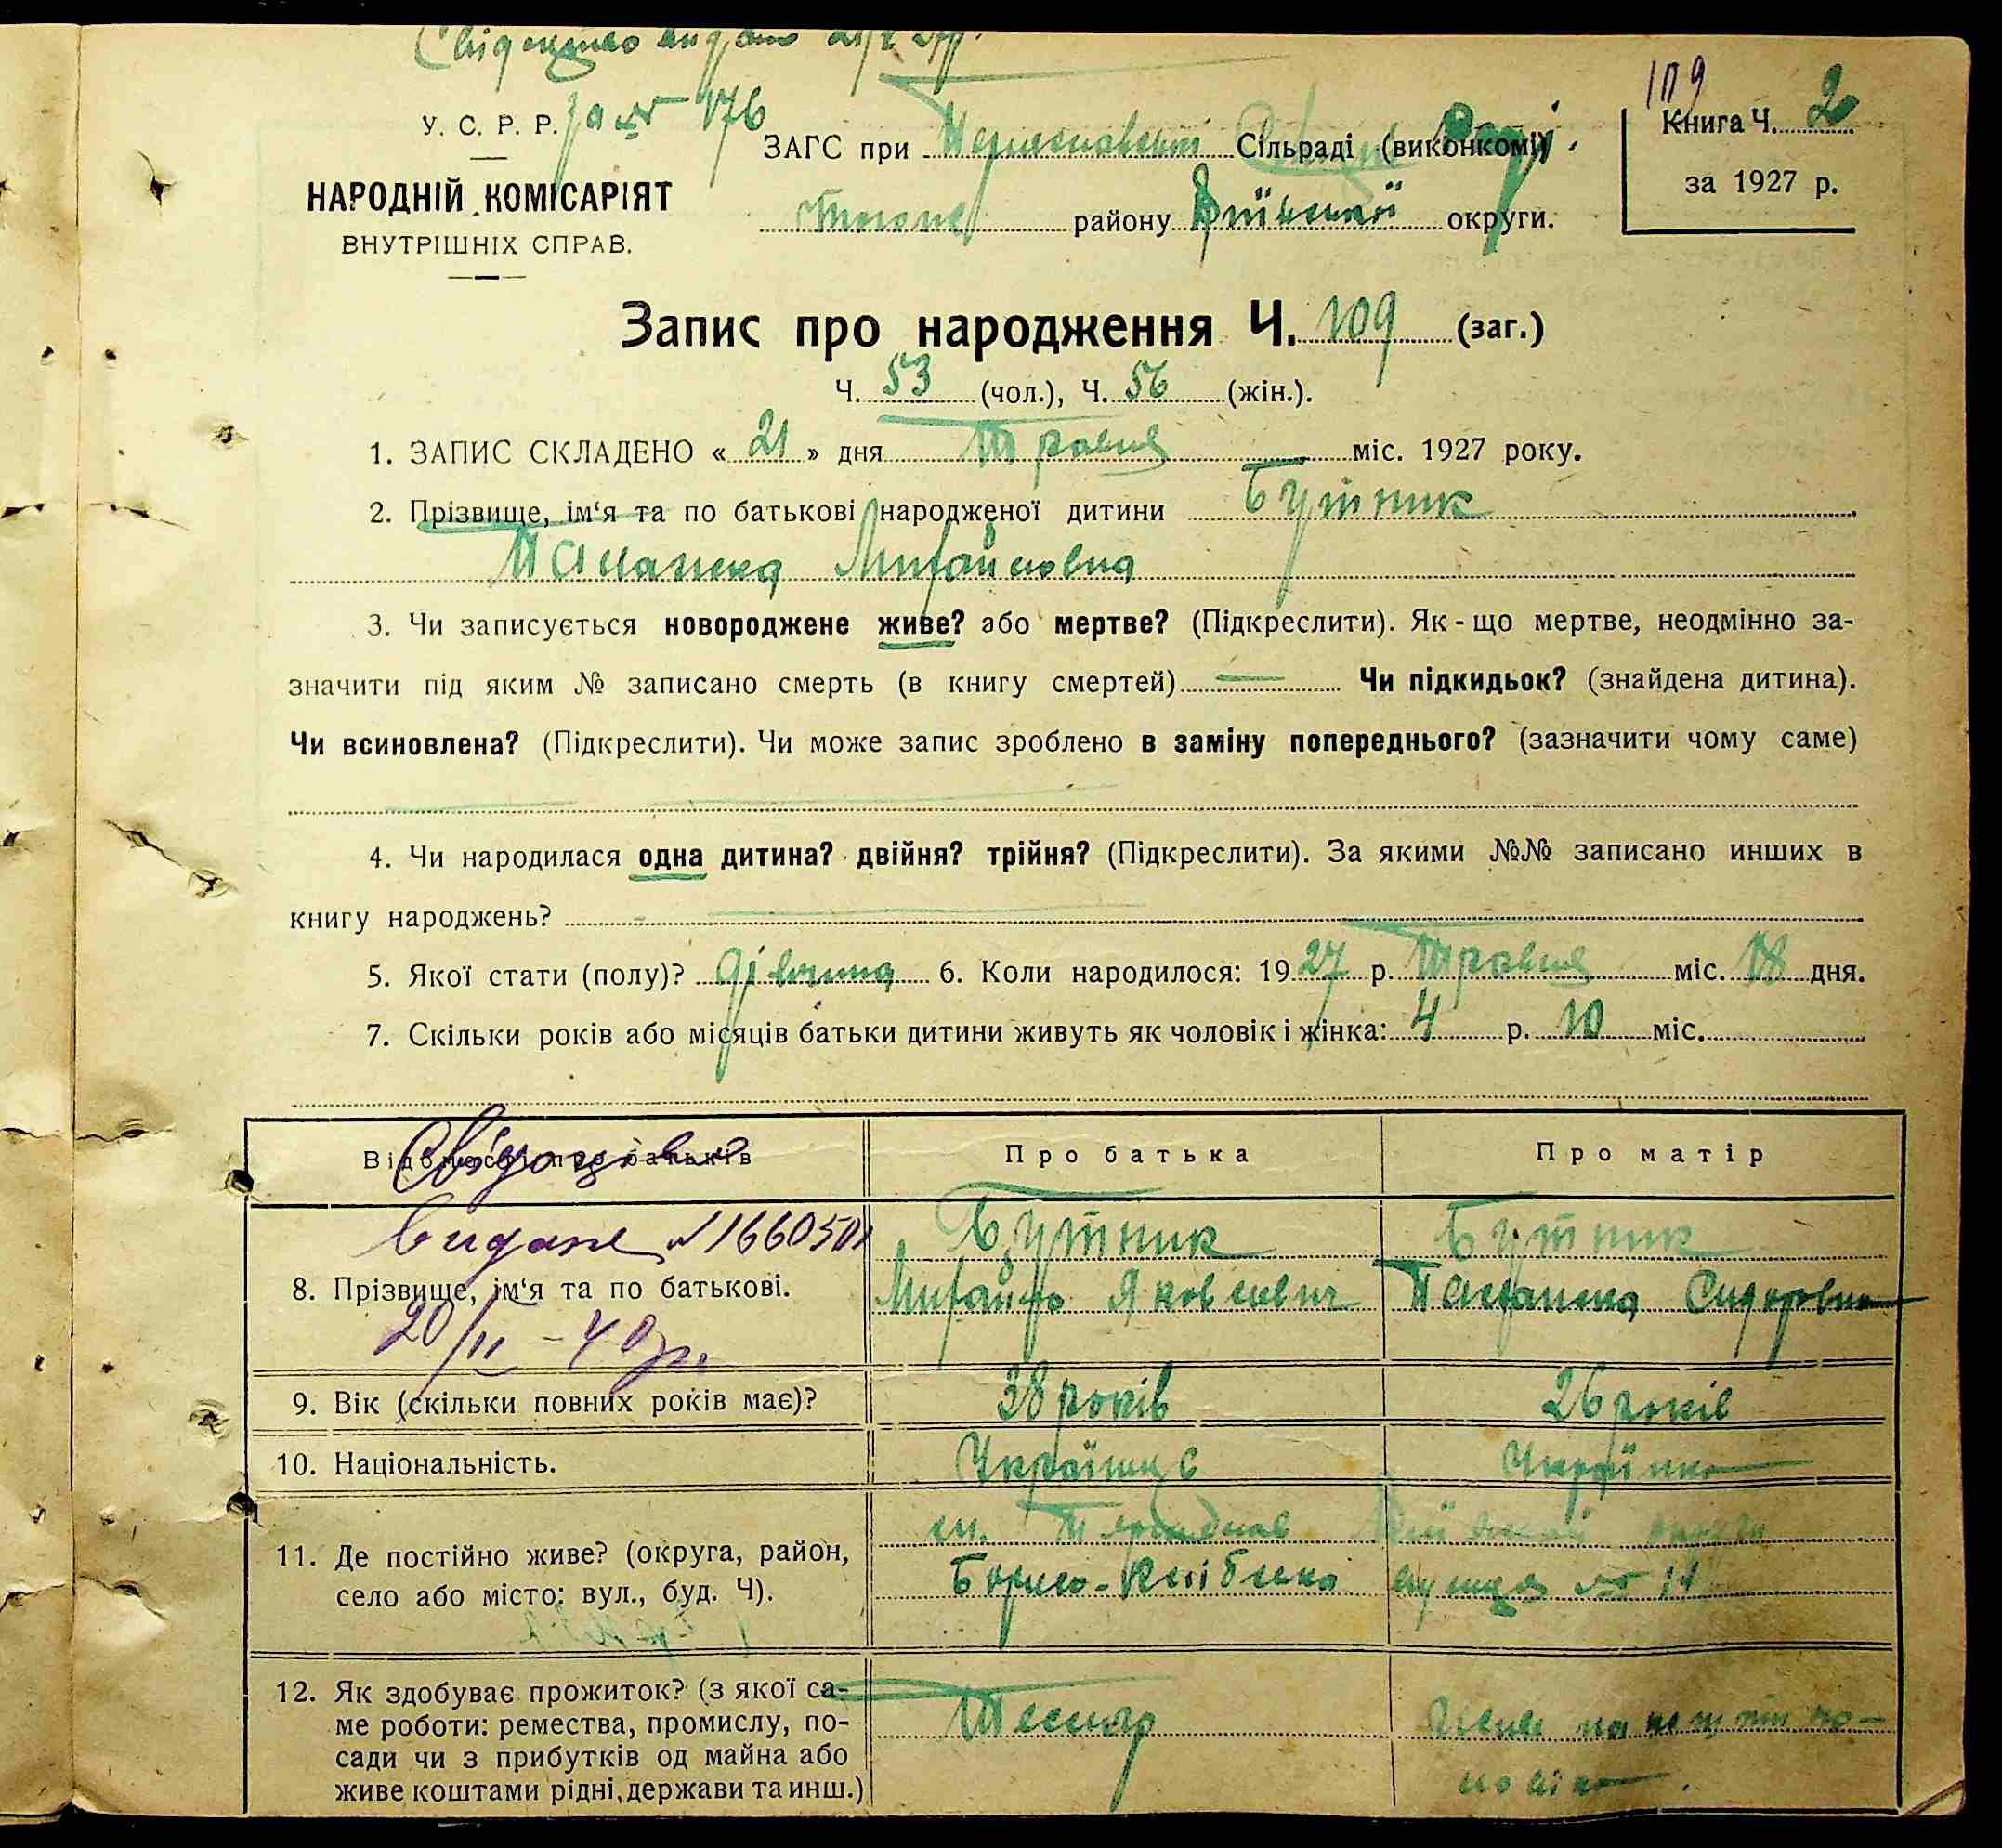 Свідоцтво видано 21/V 27р.
за № 176
У. С. Р. Р.
НАРОДНІЙ КОМІСАРІЯТ
ВНУТРІШНІХ СПРАВ.
ЗАГС при Сільраді (виконкомі)
району Київської округи.
119
Книга Ч. 2
за 1927 р.
Запис про народження Ч. 109 (заг.)
Ч. 53 (чол.), Ч. 56 (жін.).
1. ЗАПИС СКЛАДЕНО « 21 » дня Травня міс. 1927 року.
2. Прізвище, ім‘я та по батькові народженої дитини Бутник
Михайловна
3. Чи записується новороджене живе? або мертве? (Підкреслити). Як-що мертве, неодмінно за-
значити під яким № записано смерть (в книгу смертей) — Чи підкидьок? (знайдена дитина).
Чи всиновлена? (Підкреслити). Чи може запис зроблено в заміну попереднього? (зазначити чому саме)
4. Чи народилася одна дитина? двійня? трійня? (Підкреслити). За якими №№ записано инших в
книгу народжень?
5. Якої стати (полу)? дівчина 6. Коли народилося: 1927 р. Травня міс. 18 дня.
7. Скільки років або місяців батьки дитини живуть як чоловік і жінка: 4 р. 10 міс.
Відомості про батьків Про батька Про матір
Свідоцтво
видане № 1660501
20/II – 40р.
8. Прізвище, ім‘я та по батькові. Бутник Бутник
Михайло Яковлевич Сидоровна
9. Вік (скільки повних років має)? 38 років 26 років
10. Національність. Українец Українка
11. Де постійно живе? (округа, район,
село або місто: вул., буд. Ч).
Борисо-Глібська вулиця № 14
12. Як здобуває прожиток? (з якої са-
ме роботи: ремества, промислу, по-
сади чи з прибутків од майна або
живе коштами рідні, держави та инш.)
Тесляр